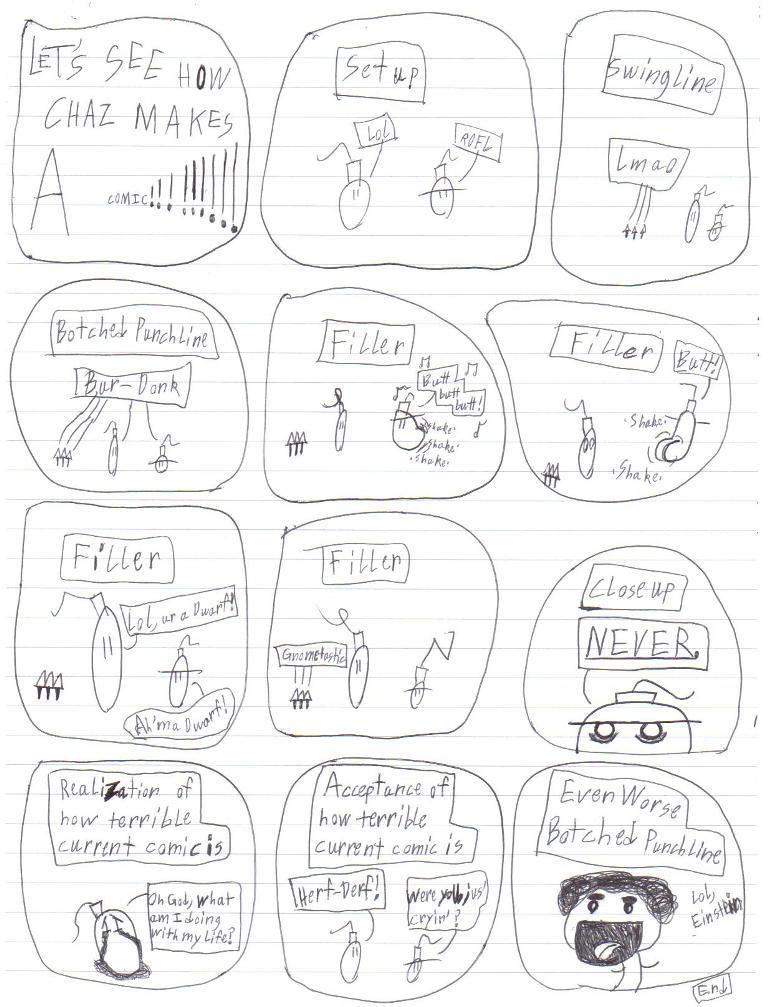 LET'S SEE HOW
CHAZ MAKES
A COMIC!!!!!!!!!!
Set up
Lol
ROFL
Swingline
Lmao
Botched Punchline
Bur-Donk
Filler
Butt
butt
butt!
shake.
shake.
shake.
Filler
Butt!
.Shake.
.Shake.
Filler
Lol, ur a Dwarf!
Ah'ma Dwarf!
Filler
Gnometastic
Close up
NEVER.
Realization of
how terrible
current comic is
Oh God, what
am I doing
with my life?
Acceptance of
how terrible
current comic is
Herf-Derf!
Were you jus'
cryin'?
Even Worse
Botched Punchline
Lol,
Einstein
End